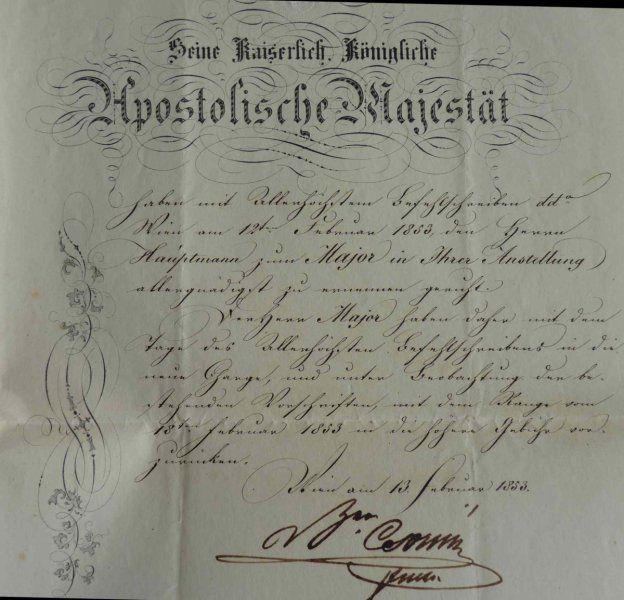 Seine Kaiserlich, Königliche
Apostolische Majestät
haben mit Allerhöchstem Befehlschreiben ddo
Wien am 12ten Februar 1853, den Herrn
Hauptmann zum Major in Ihrer Anstellung
allergnädigst zu ernennen geruht.
Der Herr Major haben daher mit dem
Tage des Allerhöchsten Befehlschreibens in die
neue Charge, und unter Beobachtung der be-
stehenden Vorschriften, mit dem Range vom
Februar 1853 in die höhere Gebühr vor-
zurücken.
Wien am 13. Februar 1853.